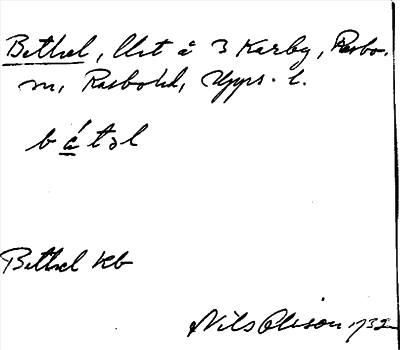 Bethel, lht å 3 Karby, Rasbo.
sn, Rasbo hd, Upps. l.
bátəl
Bethel kb
Nils Olsson 1732